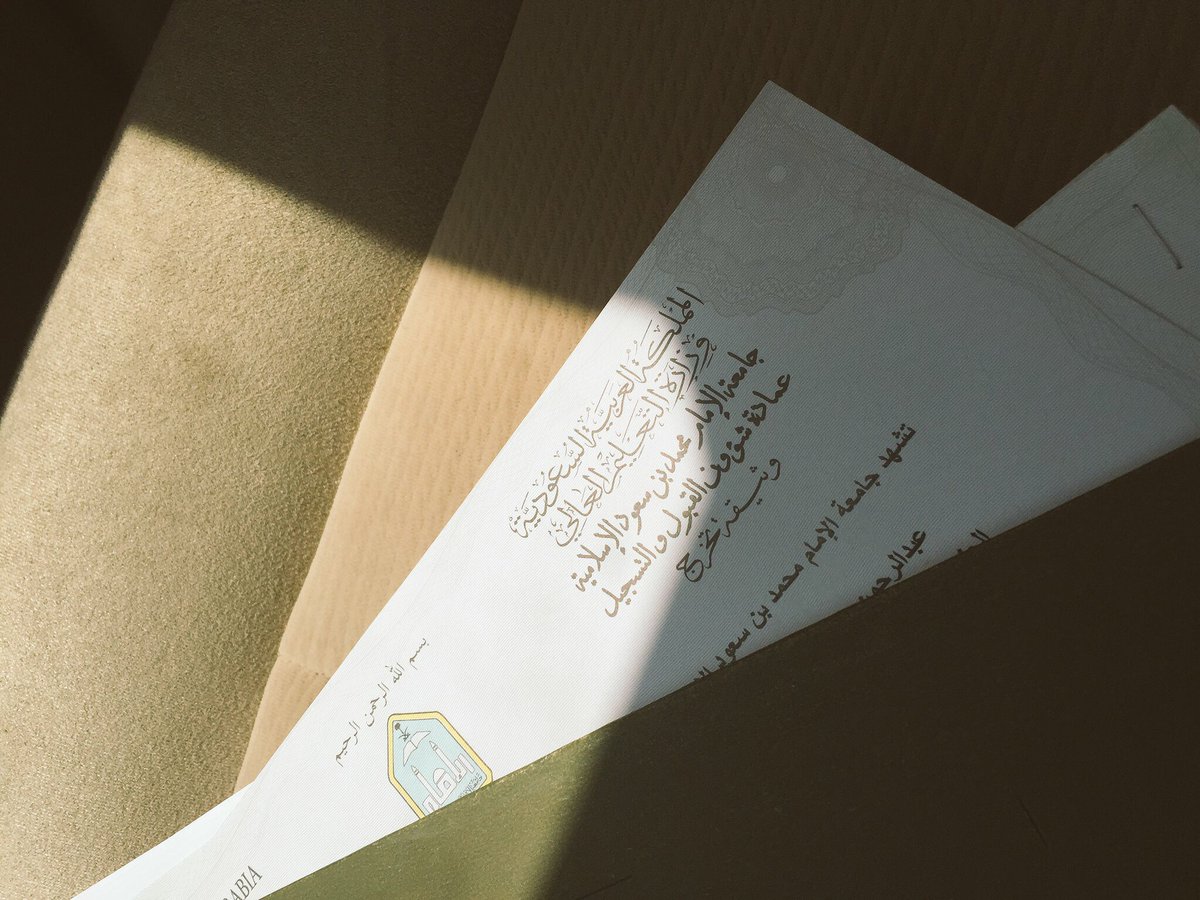 بسم الله الرحمن الرحيم
المملكة العربية السعودية
وزارة التعليم العالي
جامعة الإمام محمد بن سعود الإسلامية
عمادة شؤون القبول والتسجيل
وثيقة تخرج
تشهد جامعة الإمام محمد بن سعود
عبدالرحمن
ABIA